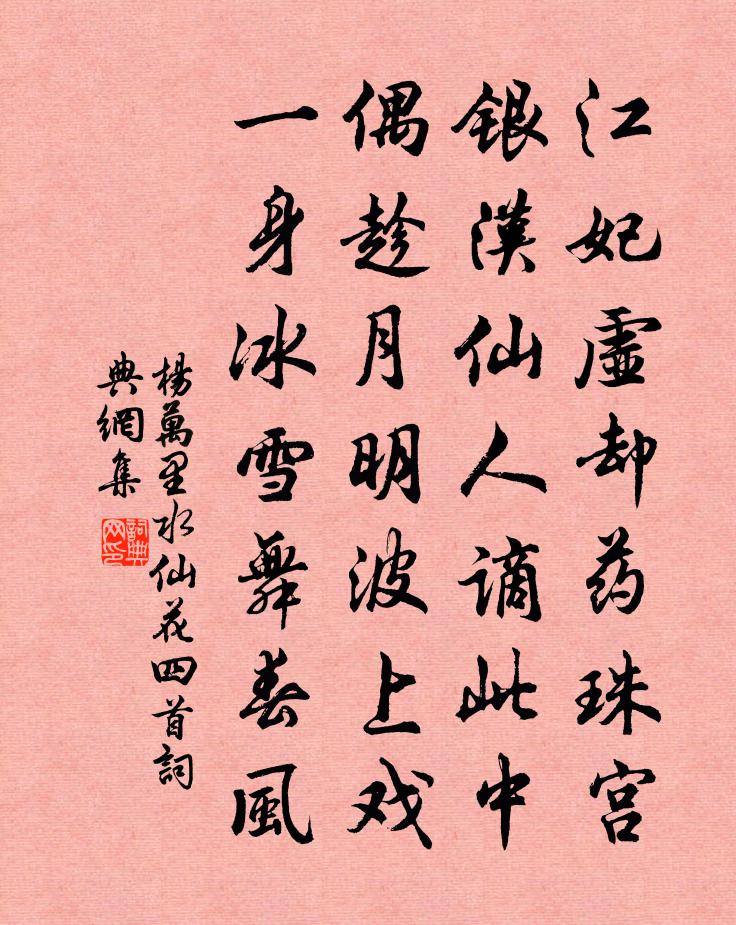 江妃虛却药珠宫
銀漢仙人謫此中
偶趁月明波上戏
一身冰雪舞春風
楊萬里水仙花四首詞
典網集
詞典
网印